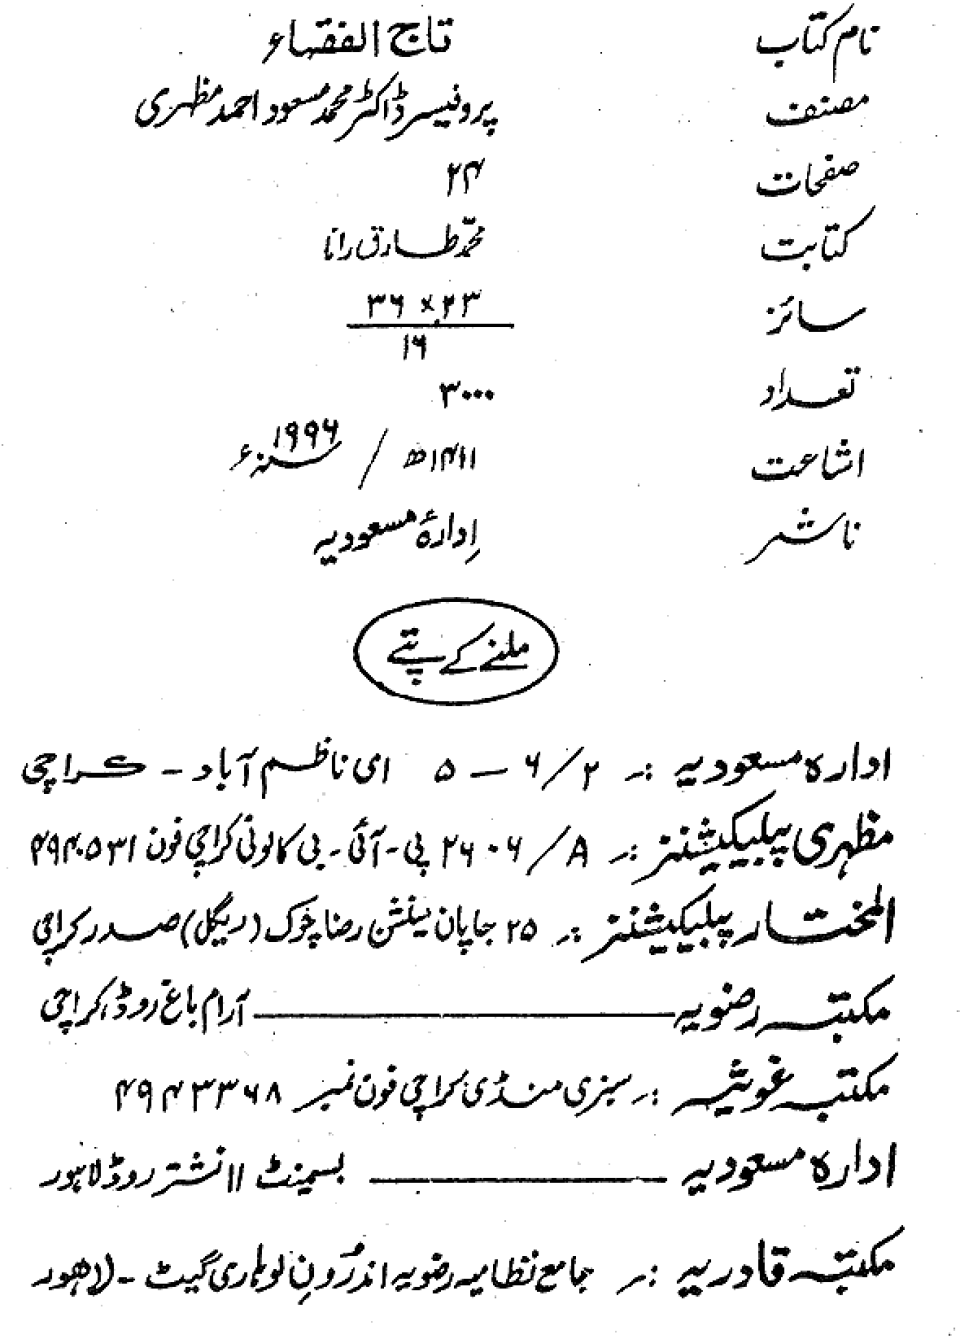 نام کتاب تاج الفقہاء
مصنف پروفیسر ڈاکٹر محمد مسعود احمد مظہری
صفحات ۲۴
کتابت محمّد طارق رانا
سائز ۲۳ × ۳۶
۱۶
تعداد ۳۰۰۰
اشاعت ۱۴۱۱ھ / ۱۹۹۶ سنہء
ناشر اِدارۂ مسعودیہ
ملنے کے پتے
ادارہ مسعودیہ :۔ ۶/۲ — ۵ ای ناظم آباد - کراچی
مظہری پبلیکیشنز :۔ ۲۶۰۶/A پی - آئی - بی کالونی کراچی فون ۴۹۴۰۵۳۱
المختار پبلیکیشنز :۔ ۲۵ جاپان مینشن رضا چوک (ریگل) صدر کراچی
مکتبہ رضویہ ——— آرام باغ روڈ، کراچی
مکتبہ غوثیہ :۔ سبزی منڈی کراچی فون نمبر ۴۹۴۳۳۶۸
ادارہ مسعودیہ ——— بسمینٹ ۱۱ نشتر روڈ لاہور
مکتبہ قادریہ :۔ جامع نظامیہ رضویہ اندرُونِ لوہاری گیٹ - لاھور